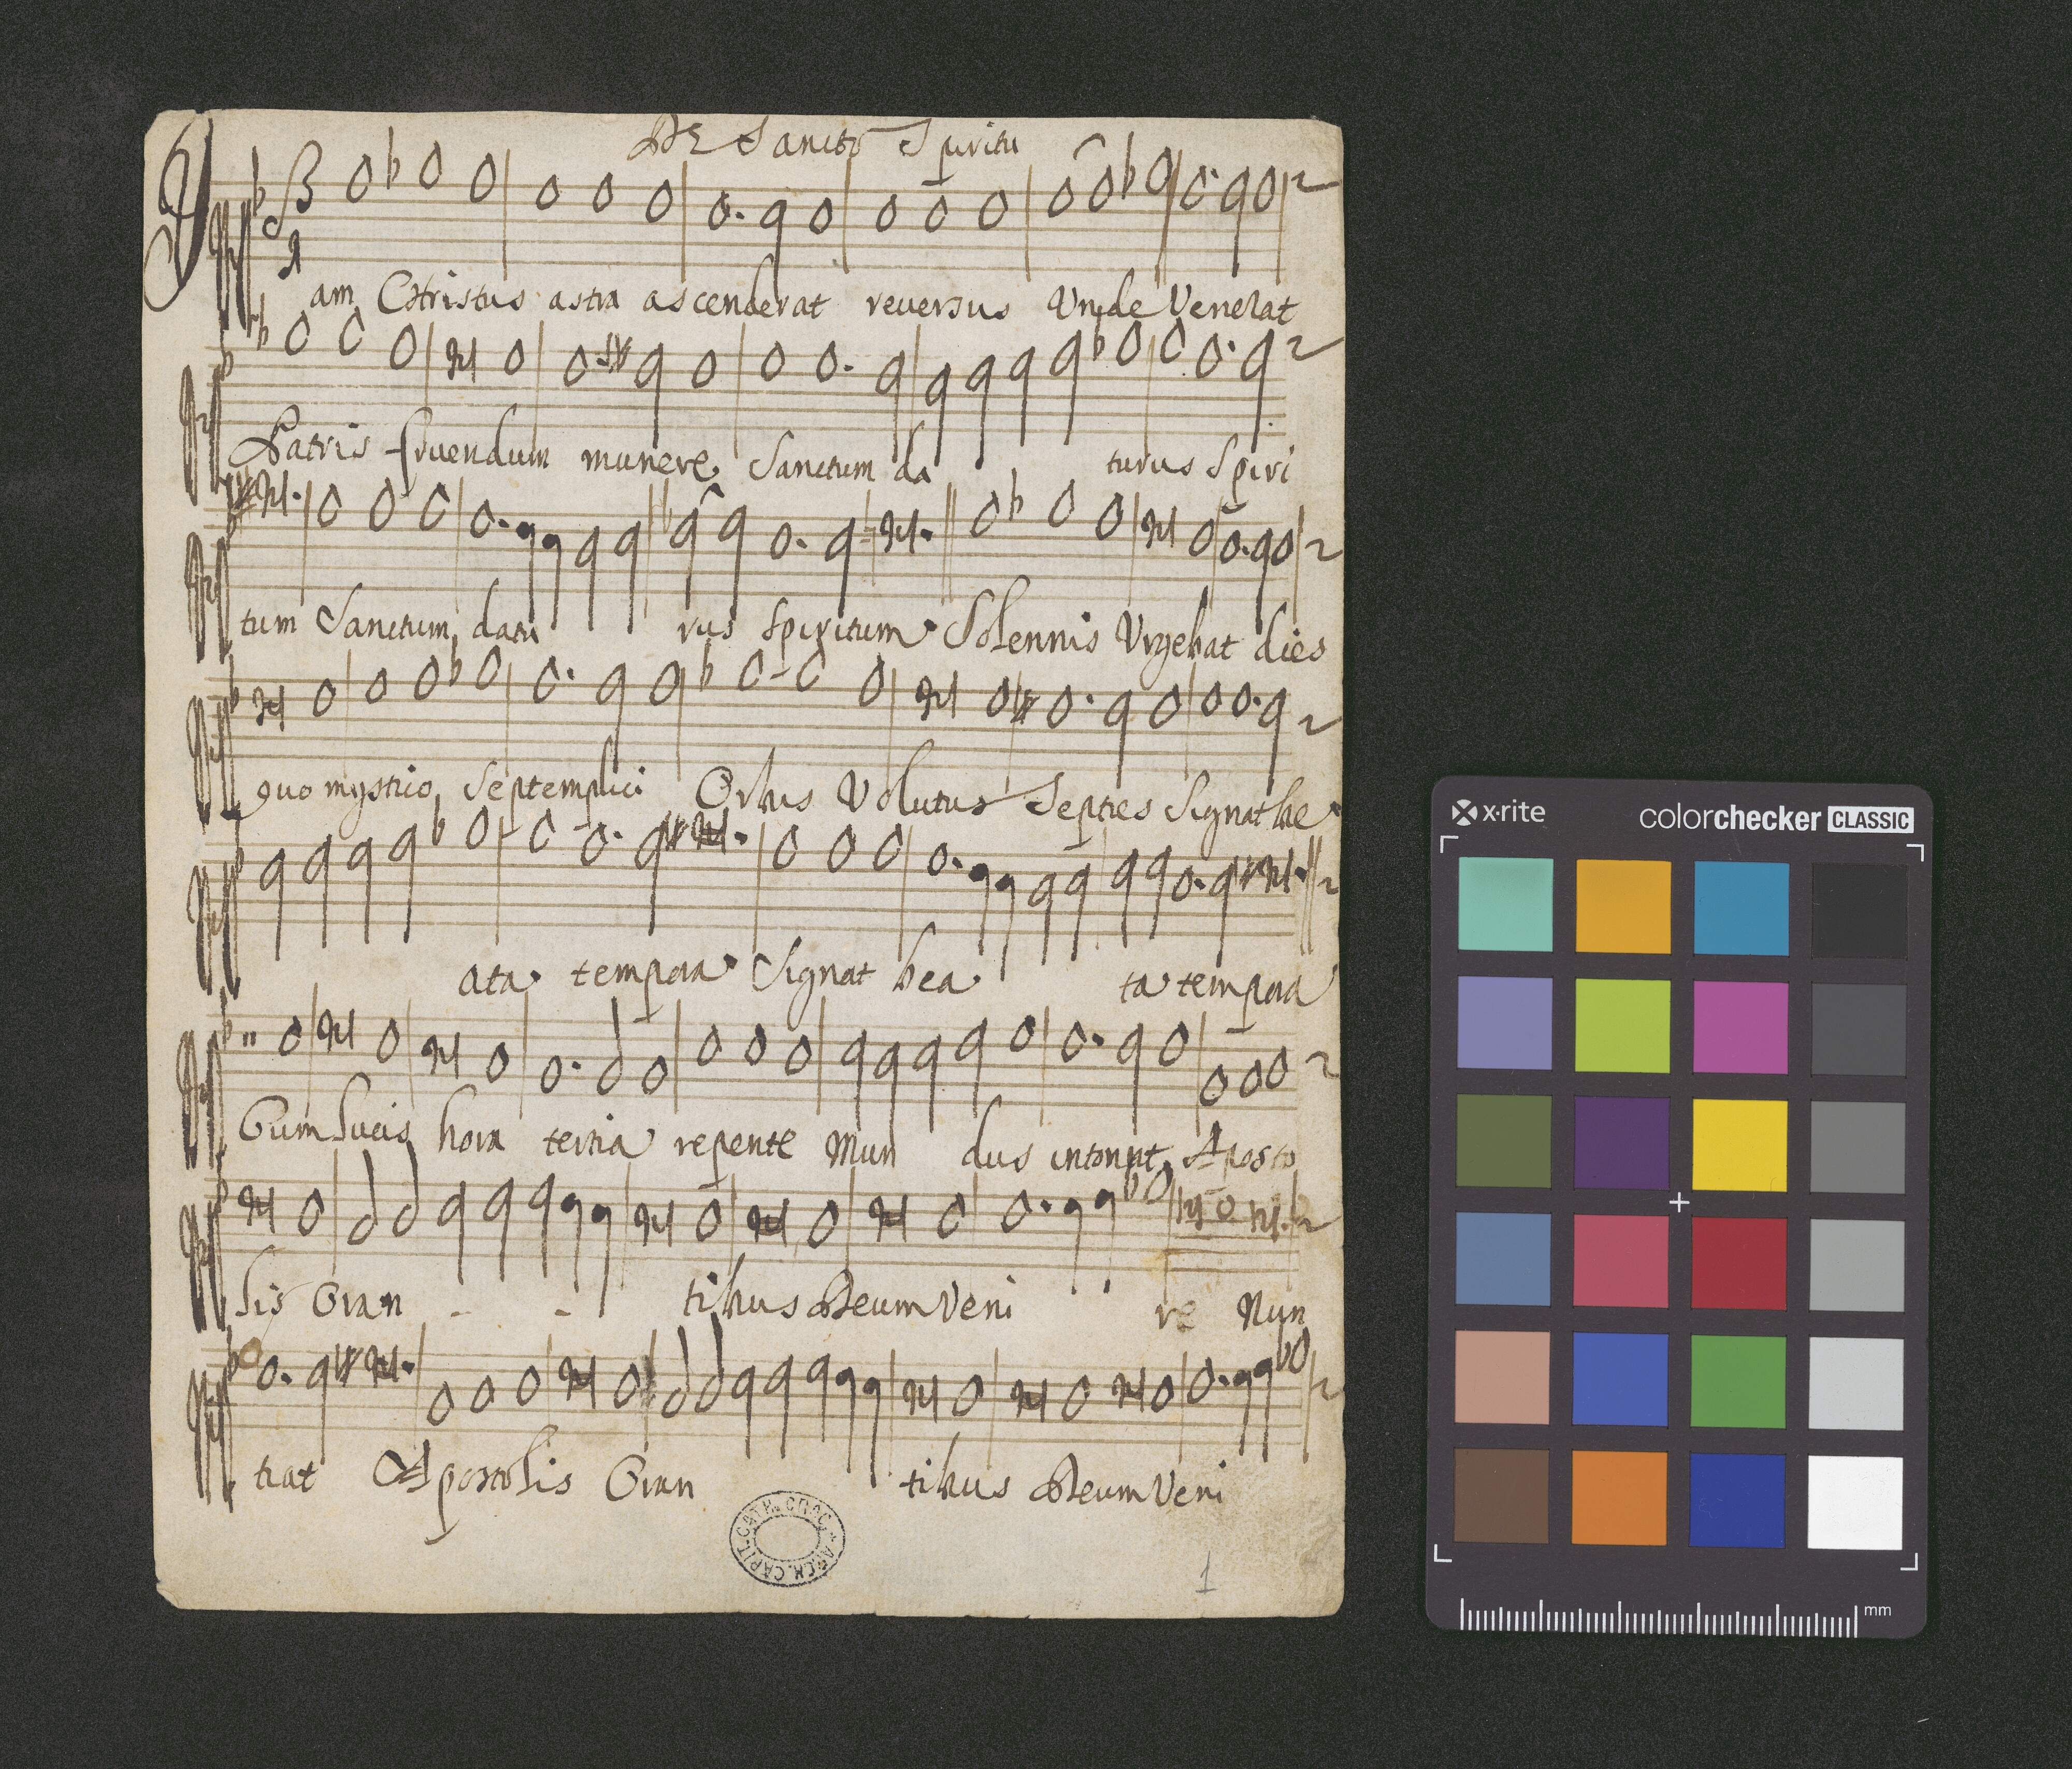 De Sancto Spiritu
am Christus astra ascenderat reversus Unde Venerat
Patris fruendum munere Sanctum da turus Spiri
tum Sanctum datu rus Spiritum Solennis Urgebat dies
quo mystico Septemplici Orbus Volutus Septies Signat be
ata tempora Signat bea ta tempora
Cum lucis hora tertia repente Mun dus intonat Aposto
lis Oran - - tibus Deum Veni re Nun
tiat Apostolis Oran tibus Deum Veni
ARCH. CAPIT. CATH. CRAC.
1
x·rite
colorchecker CLASSIC
mm